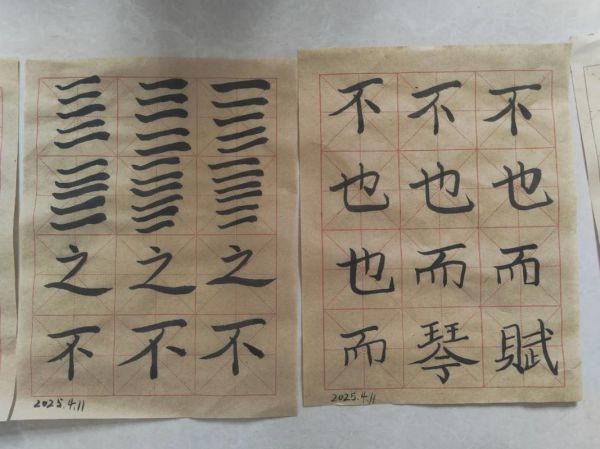 之之之
不不不
2025.4.11
不不不
也也也
也而而
而琴賦
2025.4.11